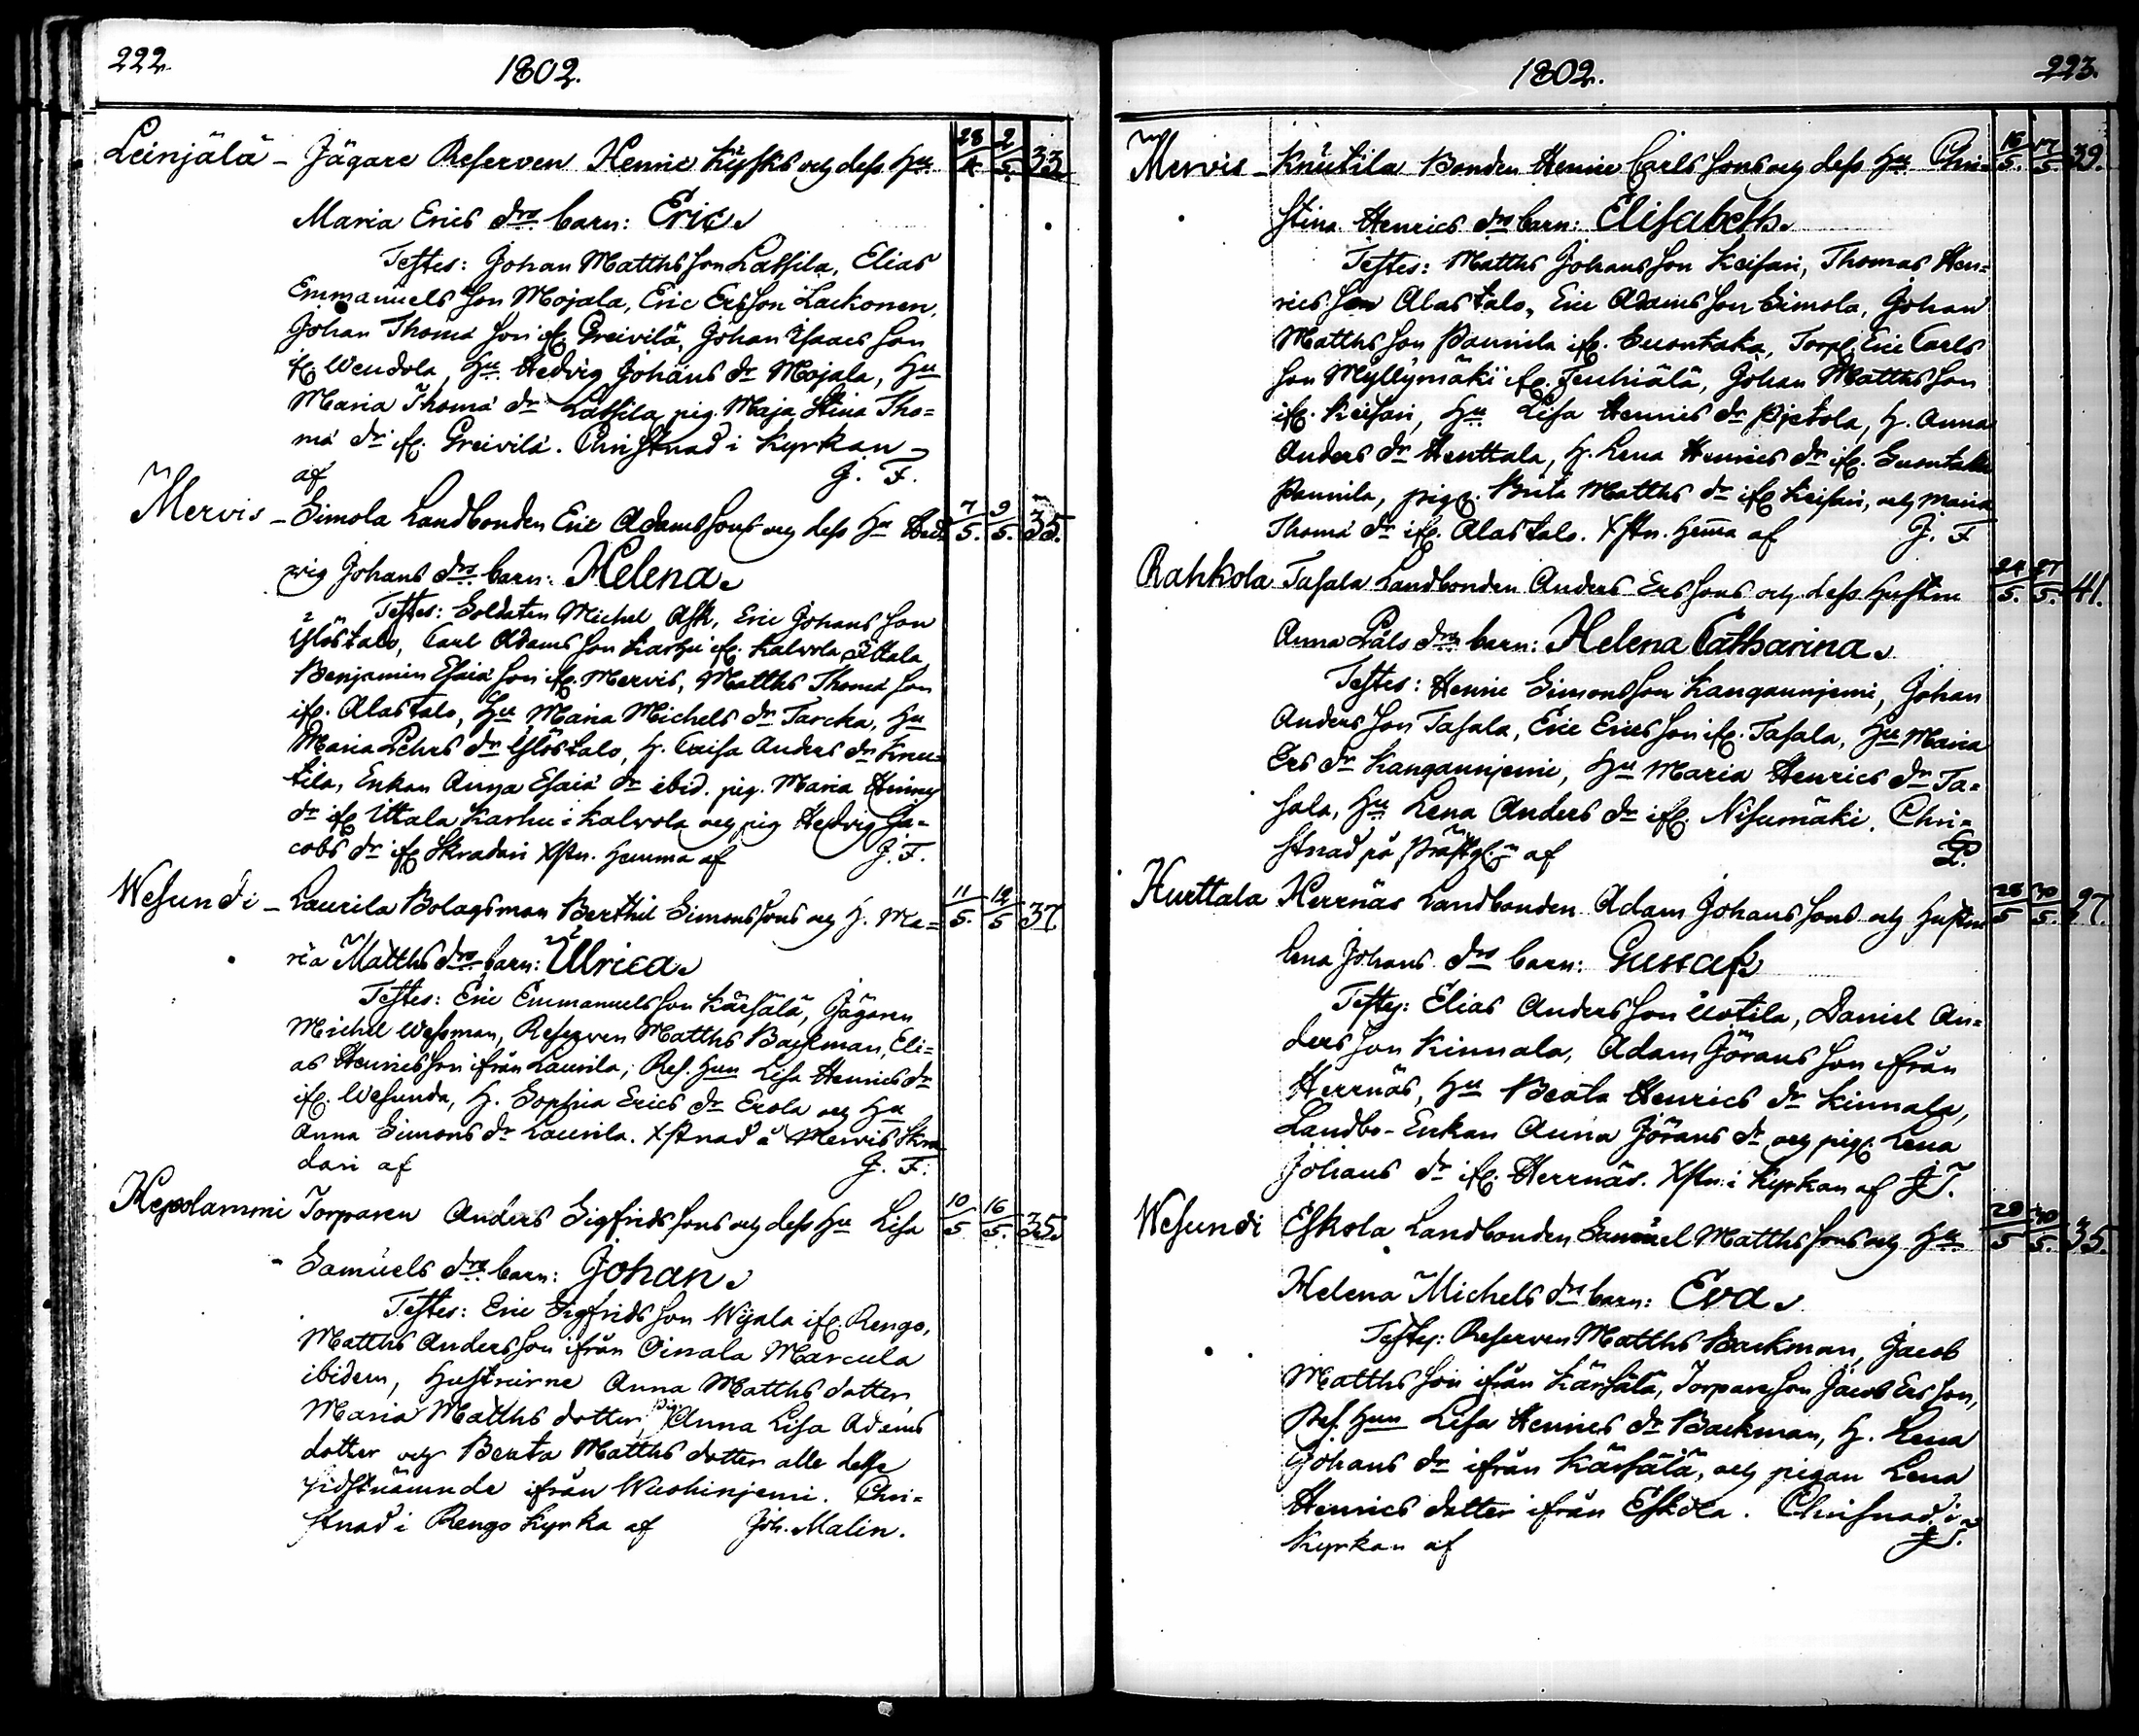 222.
1802.
Leinjälä - Jägare Reserven Henric Kijfkis och dess Hu 28/4. 2/5. 33.
Maria Erics drs barn: Eric.
Testes: Johan Matthsson Lassila, Elias
Emmanuelsson Mojala, Eric Ersson Lackonen,
Johan Thomæ son ifr. Greivilä, Johan Isaacs son
ifr. Wendola, Hu Hedvig Johans dr Mojala, Hu
Maria Thomæ dr Lassila pig. Maja Stina Tho=
mæ dr ifr. Greivilä. Christnad i Kyrkan
af J. F.
Mervis - Simola Landbonden Eric Adamssons och dess Hu Hed= 7/5. 9/5. 35.
wig Johans drs barn: Helena.
Testes: Soldaten Michel Ask, Eric Johans son
Ylöstalo, Carl Adams son Karhu ifr. Kalvola Ittala
Benjamin Esaiæ son ifr. Mervis, Matths Thomæ son
ifr. Alastalo, Hu Maria Michels dr Tarcka, Hu
Maria Pehrs dr Ylöstalo, H. Caisa Anders dr Knu=
tila, Enkan Anna Esaiæ dr ibid. pig. Maria Henrics
dr ifr Ittala Karhu i Kalvola och pig Hedvig Ja=
cobs dr ifr Skradari Xstn. hemma af J. F.
Wesundi - Laurila Bolagsman Berthil Simonssons och H. Ma= 11/5. 12/5 37.
ria Matths drs barn: Ulrica.
Testes: Eric Emmanuelsson Kärsälä, Jägaren
Michel Wessman, Reserven Matths Backman, Eli=
as Henricsson ifrån Laurila, Res. Hun Lisa Henrics dr
ifr. Wesunda, H. Sophia Erics dr Erola och Hu
Anna Simons dr Laurila. Xstnad å Mervis Skra
dari af J. F.
Kepolammi Torparen Anders Sigfridssons och dess Hu Lisa 10/5 16/5. 35.
Samuels drs barn: Johan.
Testes: Eric Sigfridsson Wijala ifr. Rengo,
Matths Andersson ifrån Oinala Marcula
ibidem, Hustrurne Anna Matths dotter,
Maria Matths dotter, pig. Anna Lisa Adams
dotter och Beata Matths dotter alle desse
sidstnämnde ifrån Wuohinjemi. Chri=
stnad i Rengo Kyrka af Joh. Malin.
1802.
223.
Mervis - Knutila Bonden Henric Carlssons och dess Hu Chri= 16/5. 17/5. 39.
stina Henrics drs barn: Elisabeth.
Testes: Matths Johansson Keisari, Thomas Hen=
rics son Alastalo, Eric Adamsson Simola, Johan
Matthsson Pannila ifr. Suontaka, Torp. Eric Carls
son Myllymäki ifr. Jeuhiälä, Johan Matthsson
ifr. Keisari, Hu Lisa Henrics dr Pjetola, H. Anna
Anders dr Henttala, H. Lena Henrics dr ifr. Suontaka
Pannila, pig. Brita Matths dr ifr Keisari, och Maria
Thomæ dr ifr. Alastalo. Xstn. hema af J. F
Rahkola Tasala Landbonden Anders Erssons och dess Hustru 24/5. 27/5. 41.
Anna Påls drs barn: Helena Catharina.
Testes: Henric Simonsson Kangaunjemi, Johan
Andersson Tasala, Eric Ericsson ifr. Tasala, Hu Maria
Ers dr Kangaunjemi, Hu Maria Henrics dr Ta=
sala, Hu Lena Anders dr ifr. Nisumäki. Chri=
stnad på Prästg. af
Kurttala Herrnäs Landbonden Adam Johanssons och Hustru 28/5 30/5. 27.
Lena Johans drs barn: Gustaf.
Testes: Elias Andersson Uotila, Daniel An=
dersson Kinnala, Adam Göransson ifrån
Herrnäs, Hu Beata Henrics dr Kinnala,
Landbo-Enkan Anna Görans dr och pig. Lena
Johans dr ifr. Herrnäs. Xstn. i Kyrkan af
Wesundi Eskola Landbonden Samuel Matthssons och Hu 28/5 30/5. 35.
Helena Michels drs barn: Eva.
Testes: Reserven Matths Backman, Jacob
Matthsson ifrån Kärsälä, Torparsson Jacob Ersson,
Res. Hun Lisa Henrics dr Backman, H. Lena
Johans dr ifrån Kärsälä, och pigan Lena
Henrics dotter ifrån Eskola. Christnad i
Kyrkan af